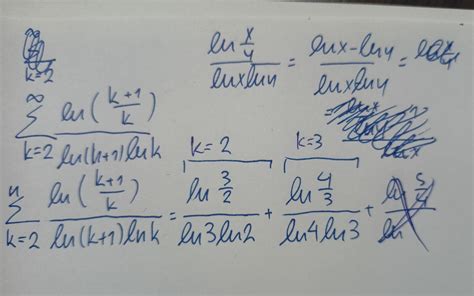 k=2
ln x/4 / lnxln4 = lnx-ln4 / lnxln4 =
∞ ∑ k=2 ln(k+1/k) / ln(k+1)lnk
k=2 k=3
n ∑ k=2 ln(k+1/k) / ln(k+1)lnk = ln 3/2 / ln3ln2 + ln 4/3 / ln4ln3 + ln 5/4 / ln